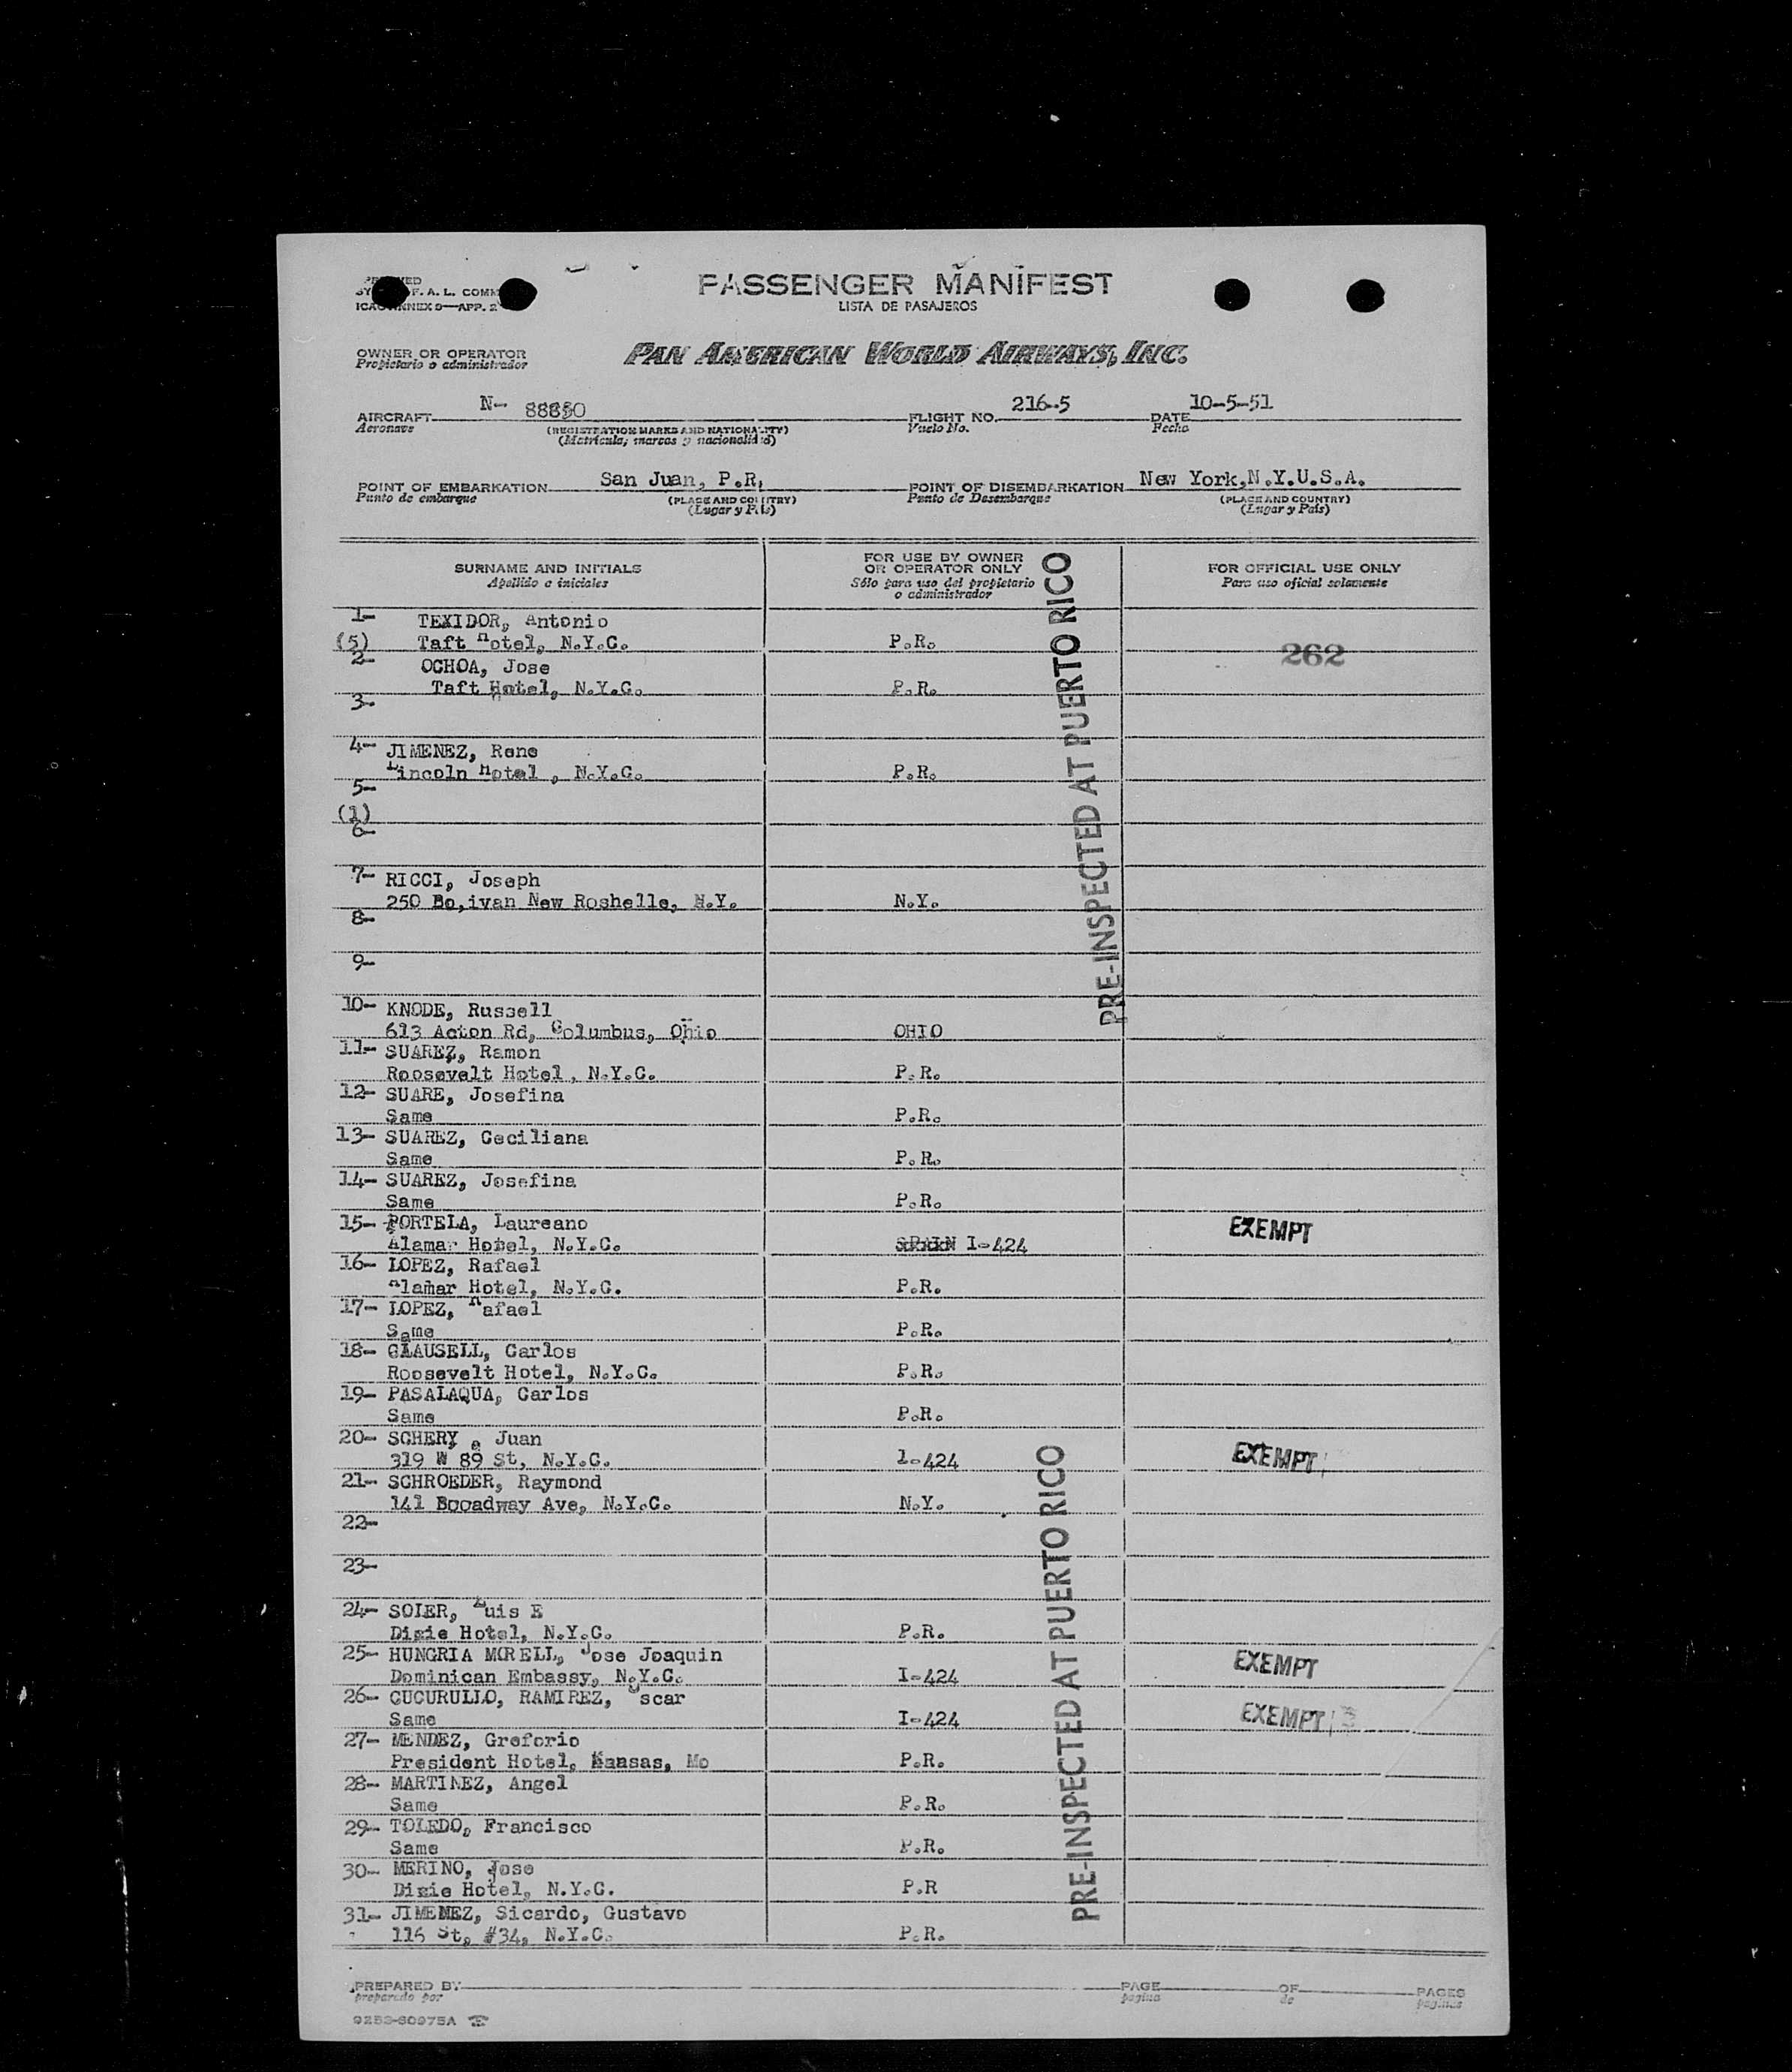 PASSENGER MANIFEST
LISTA DE PASAJEROS
F. A. L. COMM
ANNEX 9—APP. 2
OWNER OR OPERATOR
Propietario o administrador
PAN AMERICAN WORLD AIRWAYS, INC.
AIRCRAFT N- 88850 FLIGHT NO. 216-5 DATE 10-5-51
Aeronave (REGISTRATION MARKS AND NATIONALITY) Vuelo No. Fecha
(Matrícula, marcas y nacionalidad)
POINT OF EMBARKATION San Juan, P.R. POINT OF DISEMBARKATION New York,N.Y.U.S.A.
Punto de embarque (PLACE AND COUNTRY) Punto de Desembarque (PLACE AND COUNTRY)
(Lugar y País) (Lugar y País)
SURNAME AND INITIALS
Apellido e iniciales
FOR USE BY OWNER
OR OPERATOR ONLY
Sólo para uso del propietario
o administrador
FOR OFFICIAL USE ONLY
Para uso oficial solamente
PRE-INSPECTED AT PUERTO RICO
1- TEXIDOR, Antonio
(5) Taft Hotel, N.Y.C. P.R.
262
2- OCHOA, Jose
Taft Hotel, N.Y.C. P.R.
3-
4- JIMENEZ, Rene
Lincoln Hotel , N.Y.C. P.R.
5-
(1)
6-
7- RICCI, Joseph
250 Bo,ivan New Roshelle, N.Y. N.Y.
8-
9-
10- KNODE, Russell
613 Acton Rd, Columbus, Ohio OHIO
11- SUAREZ, Ramon
Roosevelt Hotel , N.Y.C. P.R.
12- SUARE, Josefina
Same P.R.
13- SUAREZ, Ceciliana
Same P.R.
14- SUAREZ, Josefina
Same P.R.
15- PORTELA, Laureano EXEMPT
Alamar Hotel, N.Y.C. SPAIN I-424
16- LOPEZ, Rafael
Alamar Hotel, N.Y.C. P.R.
17- LOPEZ, Rafael
Same P.R.
18- CLAUSELL, Carlos
Roosevelt Hotel, N.Y.C. P.R.
19- PASALAQUA, Carlos
Same P.R.
20- SCHERY , Juan
319 W 89 St, N.Y.C. 1-424 EXEMPT
21- SCHROEDER, Raymond
141 Broadway Ave, N.Y.C. N.Y.
22-
23-
PRE-INSPECTED AT PUERTO RICO
24- SOIER, Luis E
Dixie Hotel, N.Y.C. P.R.
25- HUNGRIA MORELL, Jose Joaquin EXEMPT
Dominican Embassy, N.Y.C. I-424
26- CUCURULLO, RAMIREZ, Oscar
Same I-424 EXEMPT
27- MENDEZ, Greforio
President Hotel, Kansas, Mo P.R.
28- MARTINEZ, Angel
Same P.R.
29- TOLEDO, Francisco
Same P.R.
30- MERINO, Jose
Dixie Hotel, N.Y.C. P.R
31- JIMENEZ, Sicardo, Gustavo
116 St, #34, N.Y.C. P.R.
PREPARED BY PAGE OF PAGES
preparado por pagina de paginas
9253-60975A